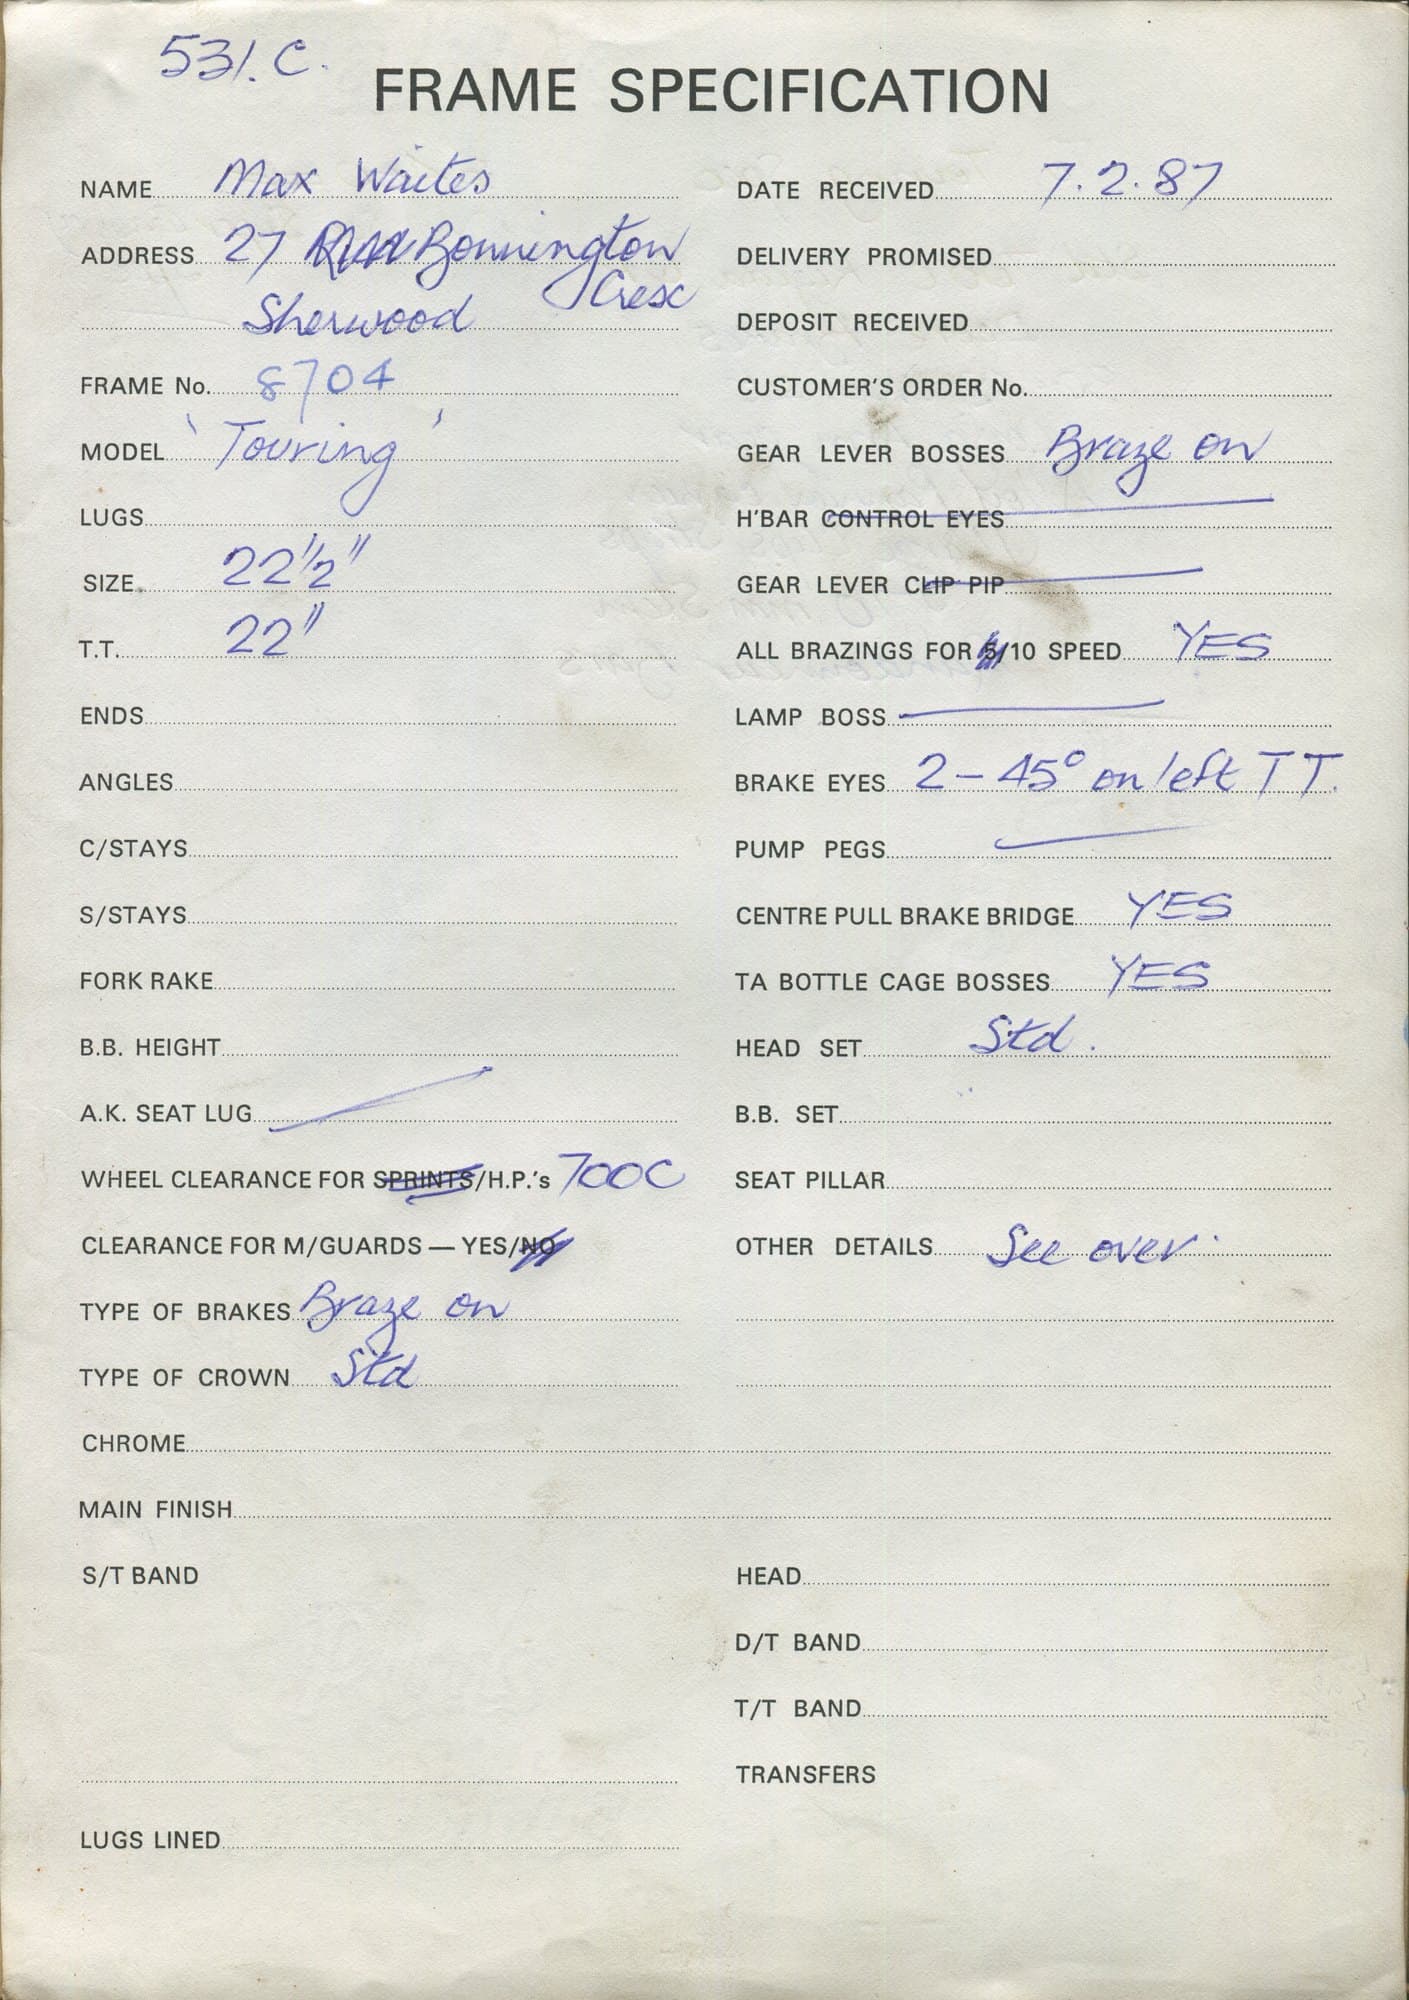 531.C.
FRAME SPECIFICATION
NAME Max Waites
ADDRESS 27 Bonnington
Cresc
Sherwood
FRAME No. 8704
MODEL 'Touring'
LUGS
SIZE 22 1/2"
T.T. 22"
ENDS
ANGLES
C/STAYS
S/STAYS
FORK RAKE
B.B. HEIGHT
A.K. SEAT LUG
WHEEL CLEARANCE FOR SPRINTS/H.P.'s 700C
CLEARANCE FOR M/GUARDS — YES/NO
TYPE OF BRAKES Braze on
TYPE OF CROWN Std
DATE RECEIVED 7.2.87
DELIVERY PROMISED
DEPOSIT RECEIVED
CUSTOMER'S ORDER No.
GEAR LEVER BOSSES Braze on
H'BAR CONTROL EYES
GEAR LEVER CLIP PIP
ALL BRAZINGS FOR 5/10 SPEED YES
LAMP BOSS
BRAKE EYES 2 - 45° on left TT.
PUMP PEGS
CENTRE PULL BRAKE BRIDGE YES
TA BOTTLE CAGE BOSSES YES
HEAD SET Std.
B.B. SET
SEAT PILLAR
OTHER DETAILS See over
CHROME
MAIN FINISH
S/T BAND
LUGS LINED
HEAD
D/T BAND
T/T BAND
TRANSFERS